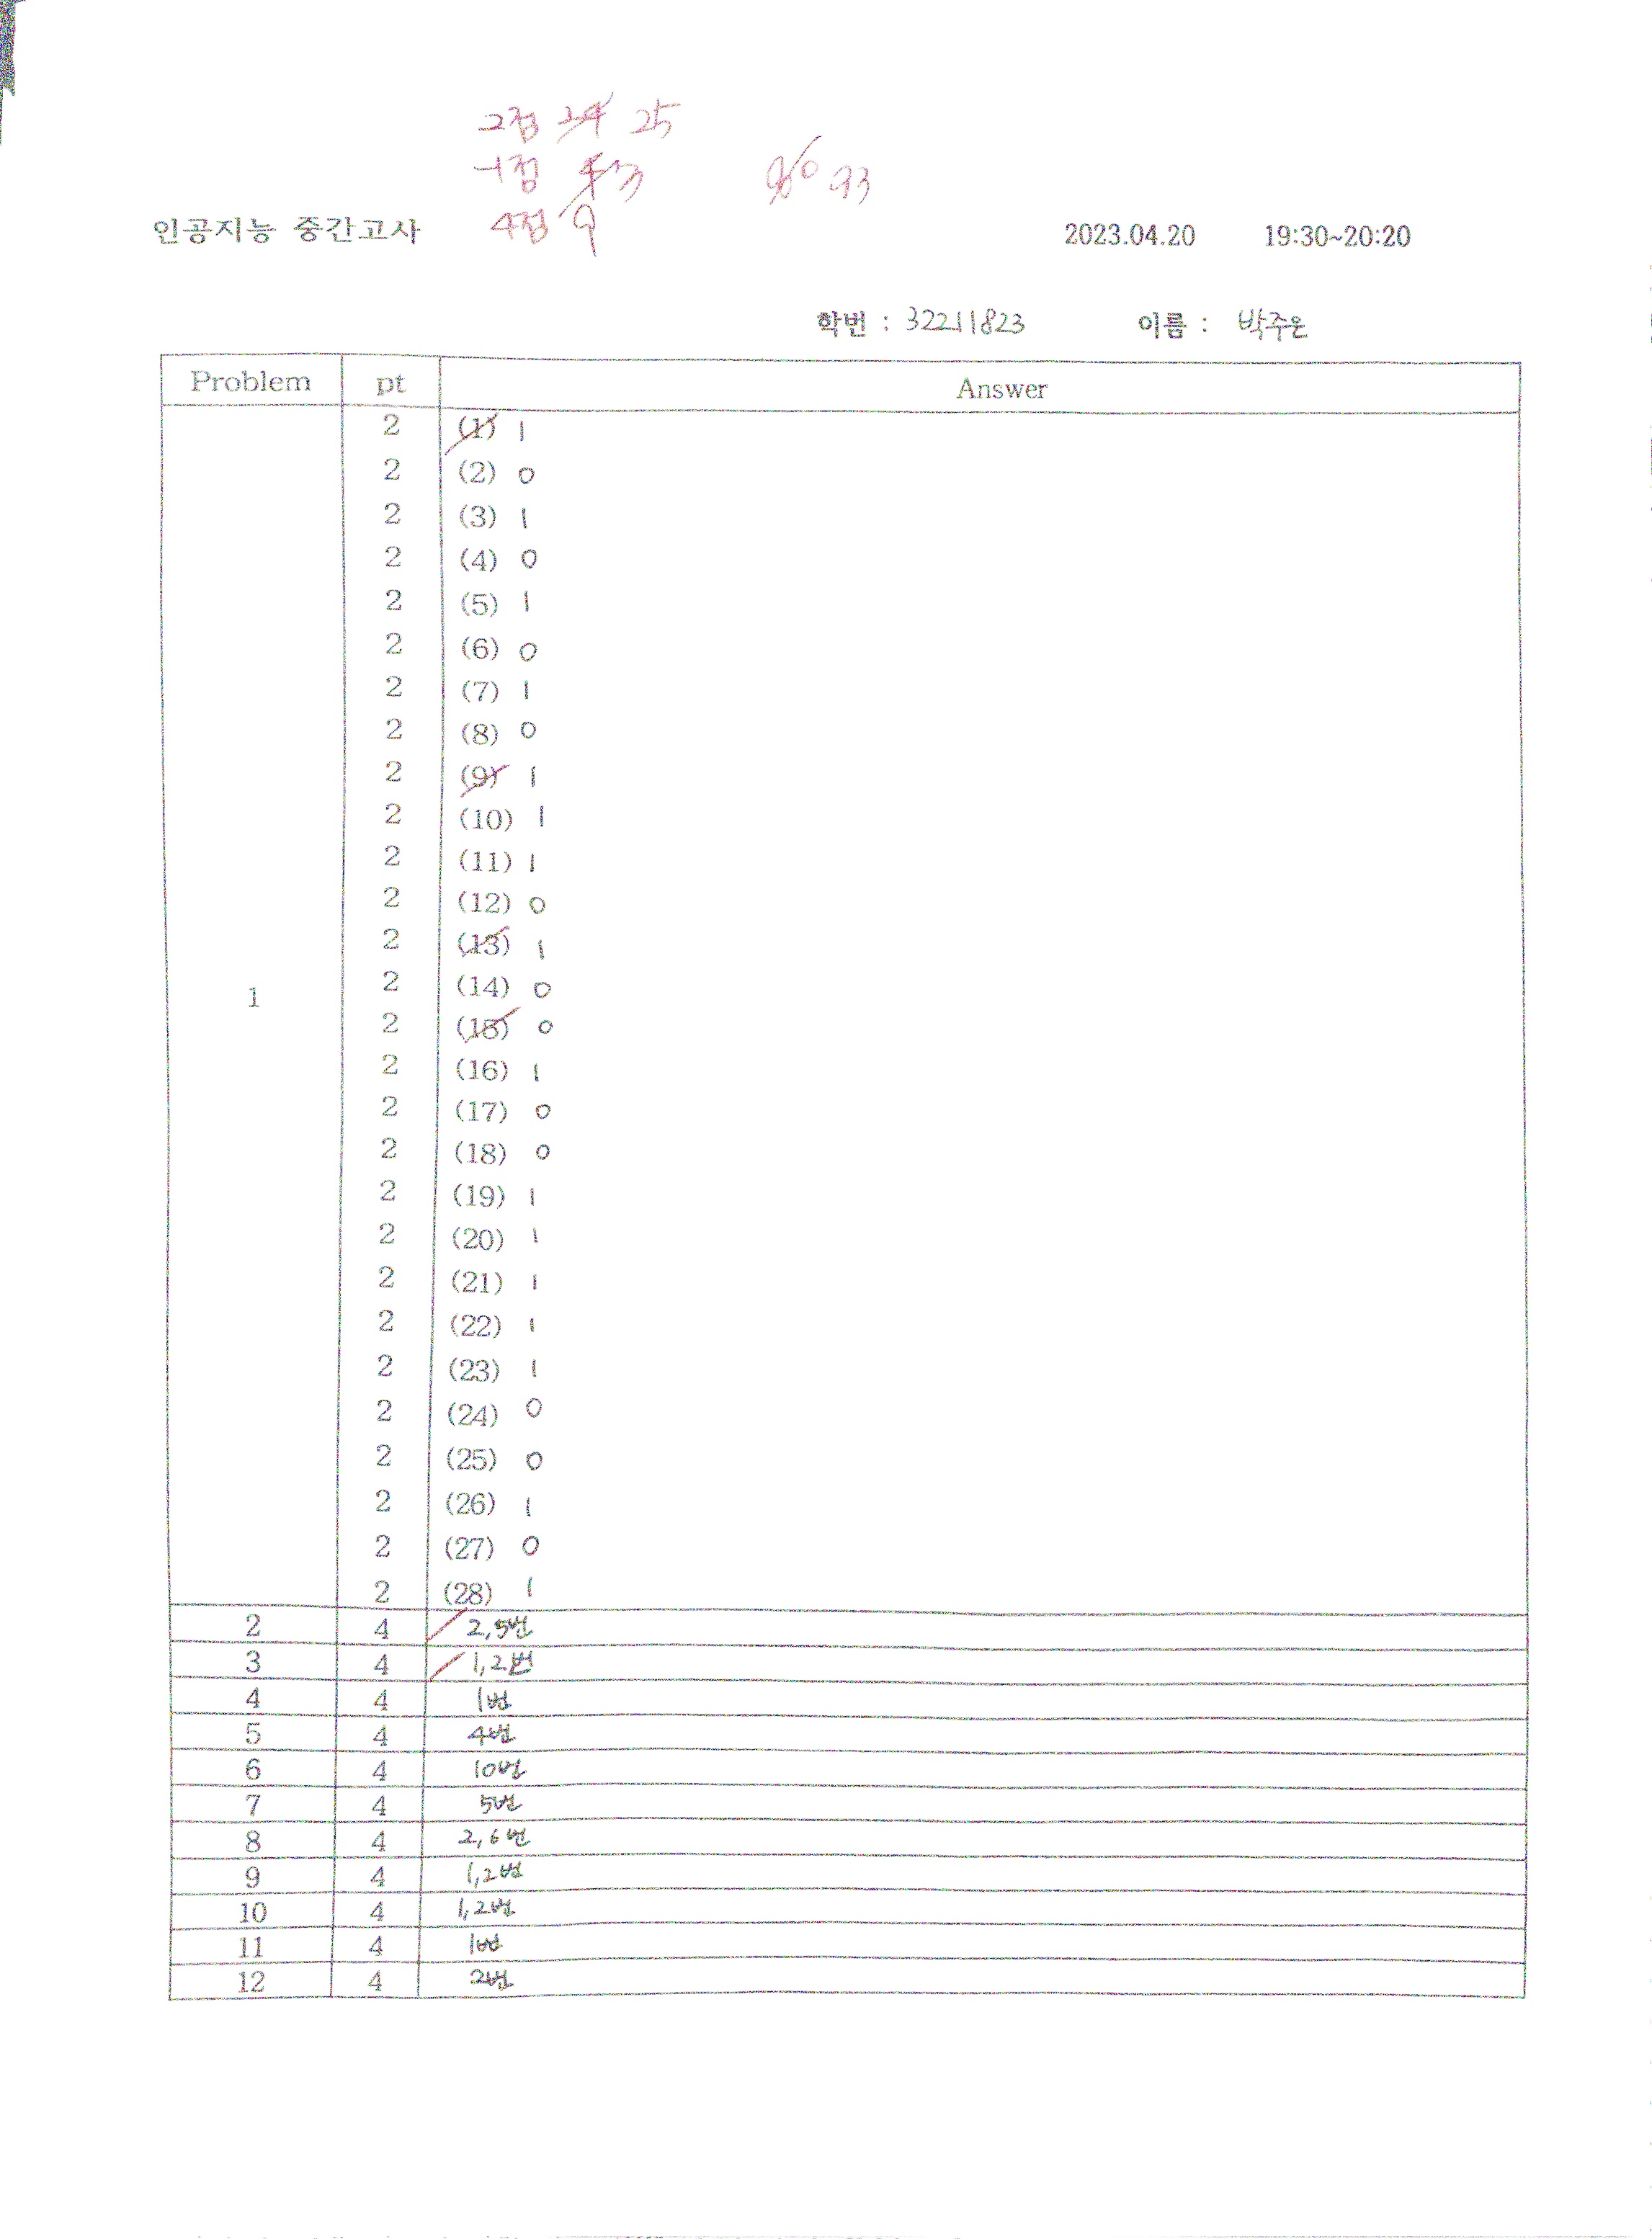 2점 24 25
-1점 4 3 90 93
4점 9
인공지능 중간고사 2023.04.20 19:30~20:20
학번 : 32211823 이름 : 박주은
Problem pt Answer
2 (1) 1
2 (2) 0
2 (3) 1
2 (4) 0
2 (5) 1
2 (6) 0
2 (7) 1
2 (8) 0
2 (9) 1
2 (10) 1
2 (11) 1
2 (12) 0
2 (13) 1
2 (14) 0
1
2 (15) 0
2 (16) 1
2 (17) 0
2 (18) 0
2 (19) 1
2 (20) 1
2 (21) 1
2 (22) 1
2 (23) 1
2 (24) 0
2 (25) 0
2 (26) 1
2 (27) 0
2 (28) 1
2 4 2,5번
3 4 1,2번
4 4 1번
5 4 4번
6 4 10번
7 4 5번
8 4 2,6번
9 4 1,2번
10 4 1,2번
11 4 1번
12 4 2번